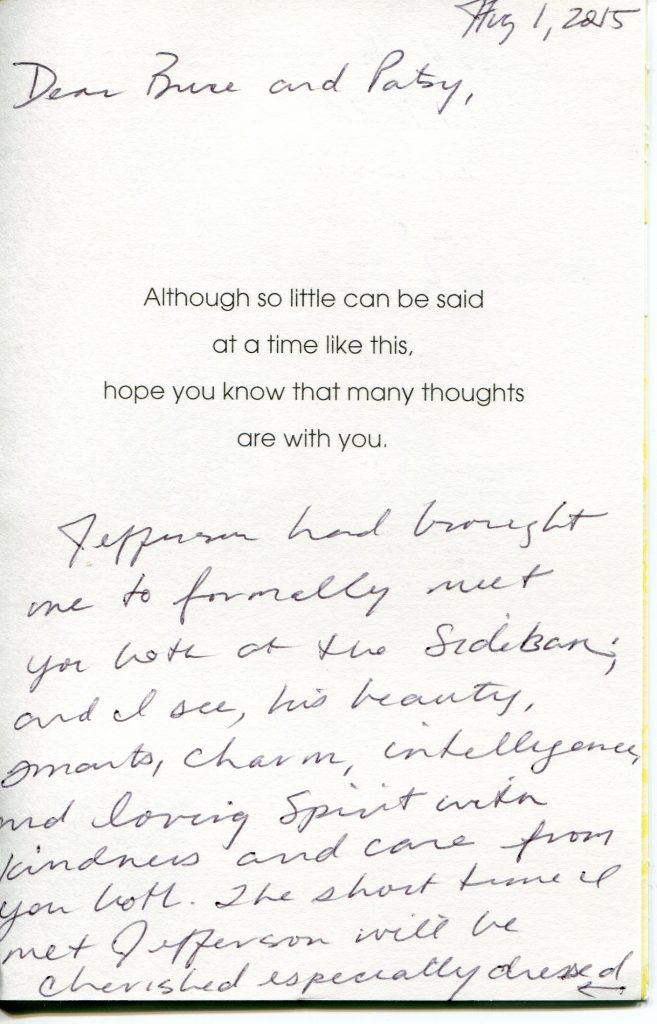 Aug 1, 2015
Dear Bruce and Patsy,
Although so little can be said
at a time like this,
hope you know that many thoughts
are with you.
Jefferson had brought
me to formally meet
you both at the SideBar;
and I see, his beauty,
smarts, charm, intelligence,
and loving Spirit with
kindness and care from
you both. The short time I
met Jefferson will be
cherished especially dressed